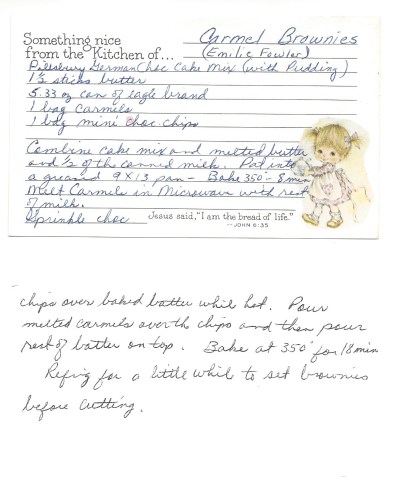 Something nice
from the Kitchen of...
Carmel Brownies
(Emilie Fowler)
Pillsbury German Choc Cake Mix (with Pudding)
1½ sticks butter
5.33 oz can of eagle brand
1 bag carmels
1 bag mini choc chips
Combine cake mix and melted butter
and ½ of the canned milk. Pat into
a greased 9X13 pan - Bake 350° - 8 min
Melt Carmels in Microwave with rest
of milk.
Sprinkle choc
Jesus said, "I am the bread of life."
—JOHN 6:35
chips over baked batter whil hot. Pour
melted carmels over th chips and then pour
rest of batter on top. Bake at 350° for 18 min
Refrig for a little whil to set brownies
before cutting.